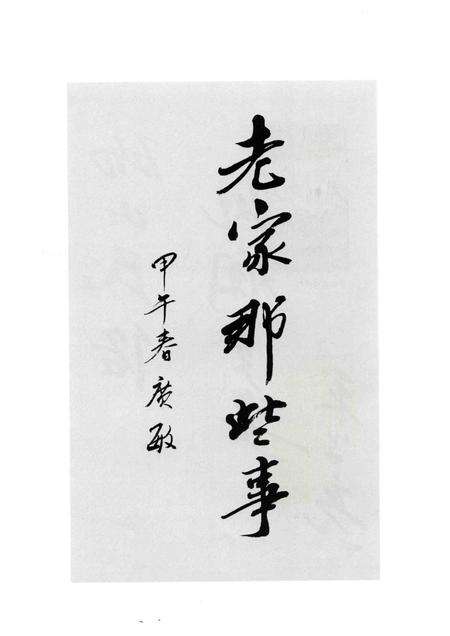 老家那些事
甲午春廣敏